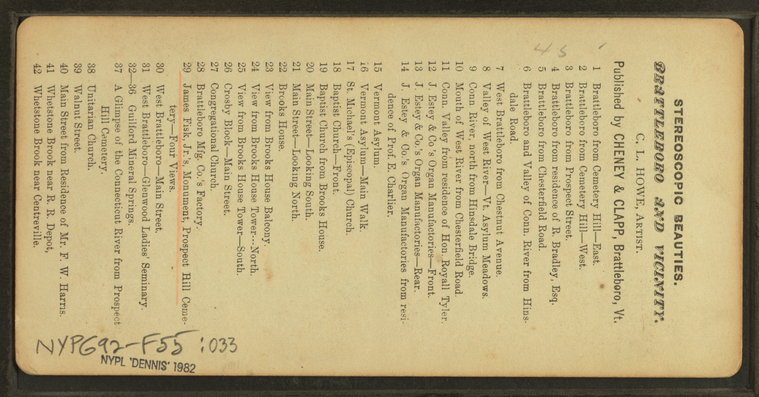 STEREOSCOPIC BEAUTIES.
BRATTLEBORO AND VICINITY.
C. L. HOWE, ARTIST.
Published by CHENEY & CLAPP, Brattleboro, Vt.
1 Brattleboro from Cemetery Hill—East.
2 Brattleboro from Cemetery Hill—West.
3 Brattleboro from Prospect Street.
4 Brattleboro from residence of R. Bradley, Esq.
5 Brattleboro from Chesterfield Road.
6 Brattleboro and Valley of Conn. River from Hins-
dale Road.
7 West Brattleboro from Chestnut Avenue.
8 Valley of West River—Vt. Asylum Meadows.
9 Conn River, north from Hinsdale Bridge.
10 Mouth of West River from Chesterfield Road
11 Conn. Valley from residence of Hon Royall Tyler.
12 J. Estey & Co's Organ Manufactories—Front.
13 J. Estey & Co.'s Organ Manufactories—Rear.
14 J. Estey & Co.'s Organ Manufactories from resi-
dence of Prof. E. Charlier.
15 Vermont Asylum.
16 Vermont Asylum—Main Walk.
17 St. Michael's (Episcopal) Church.
18 Baptist Church—Front.
19 Baptist Church from Brooks House.
20 Main Street—Looking South.
21 Main Street—Looking North.
22 Brooks House.
23 View from Brooks House Balcony.
24 View from Brooks House Tower—North.
25 View from Brooks House Tower—South.
26 Crosby Block—Main Street.
27 Congregational Church.
28 Brattleboro Mfg. Co.'s Factory.
29 James Fisk, Jr.'s, Monument, Prospect Hill Ceme-
tery—Four Views.
30 West Brattleboro—Main Street.
31 West Brattleboro—Glenwood Ladies' Seminary
32—36 Guilford Mineral Springs.
37 A Glimpse of the Connecticut River from Prospect
Hill Cemetery.
38 Unitarian Church.
39 Walnut Street.
40 Main Street from Residence of Mr. F. W. Harris.
41 Whetstone Brook near R. R. Depot,
42 Whetstone Brook near Centreville.
NYPG92-F55 :033
NYPL 'DENNIS' 1982